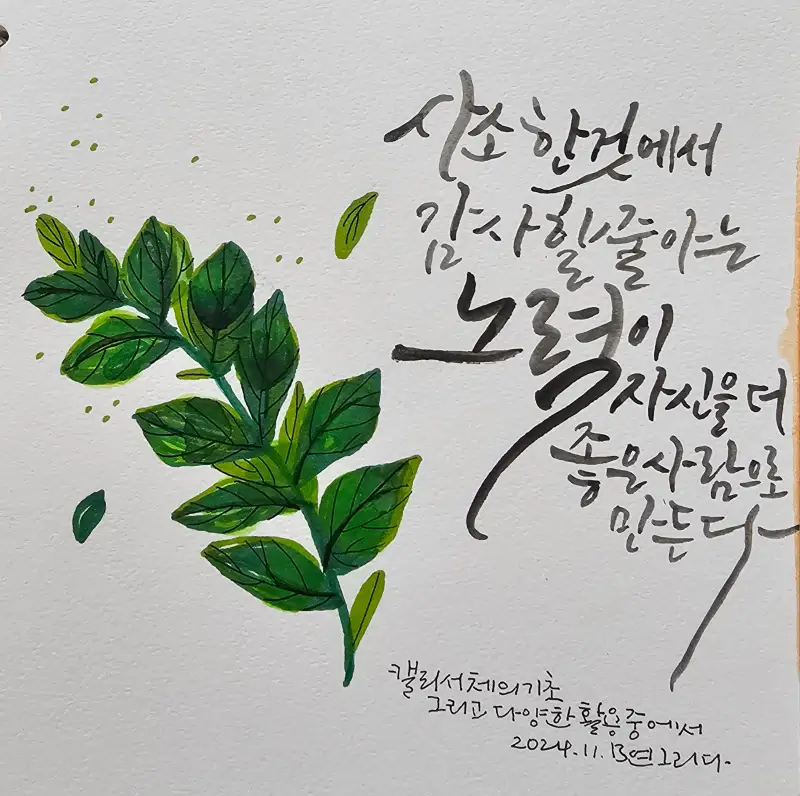 사소한것에서
감사할줄아는
노력이
자신을 더
좋은사람으로
만든다
캘리서체의기초
그리고 다양한 활용중에서
2024.11.13 연그리다.